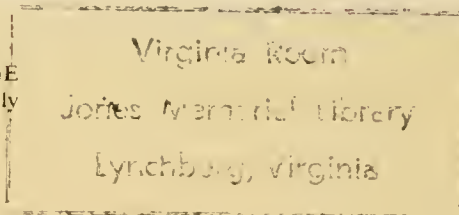 E
ly
Virginia Room
Jones Memorial Library
Lynchburg, Virginia